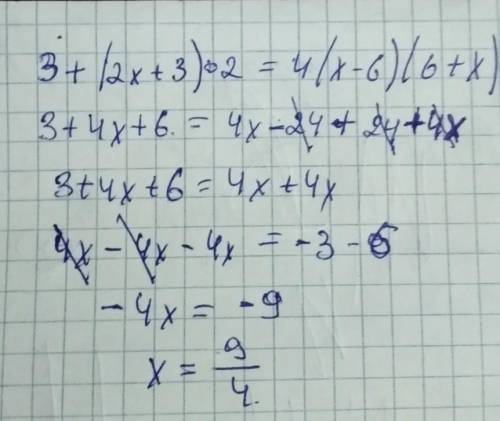 3 + (2x + 3) · 2 = 4(x - 6)(6 + x)
3 + 4x + 6 = 4x - 24 + 24 + 4x
3 + 4x + 6 = 4x + 4x
4x - 4x - 4x = -3 - 6
- 4x = - 9
x = 9/4